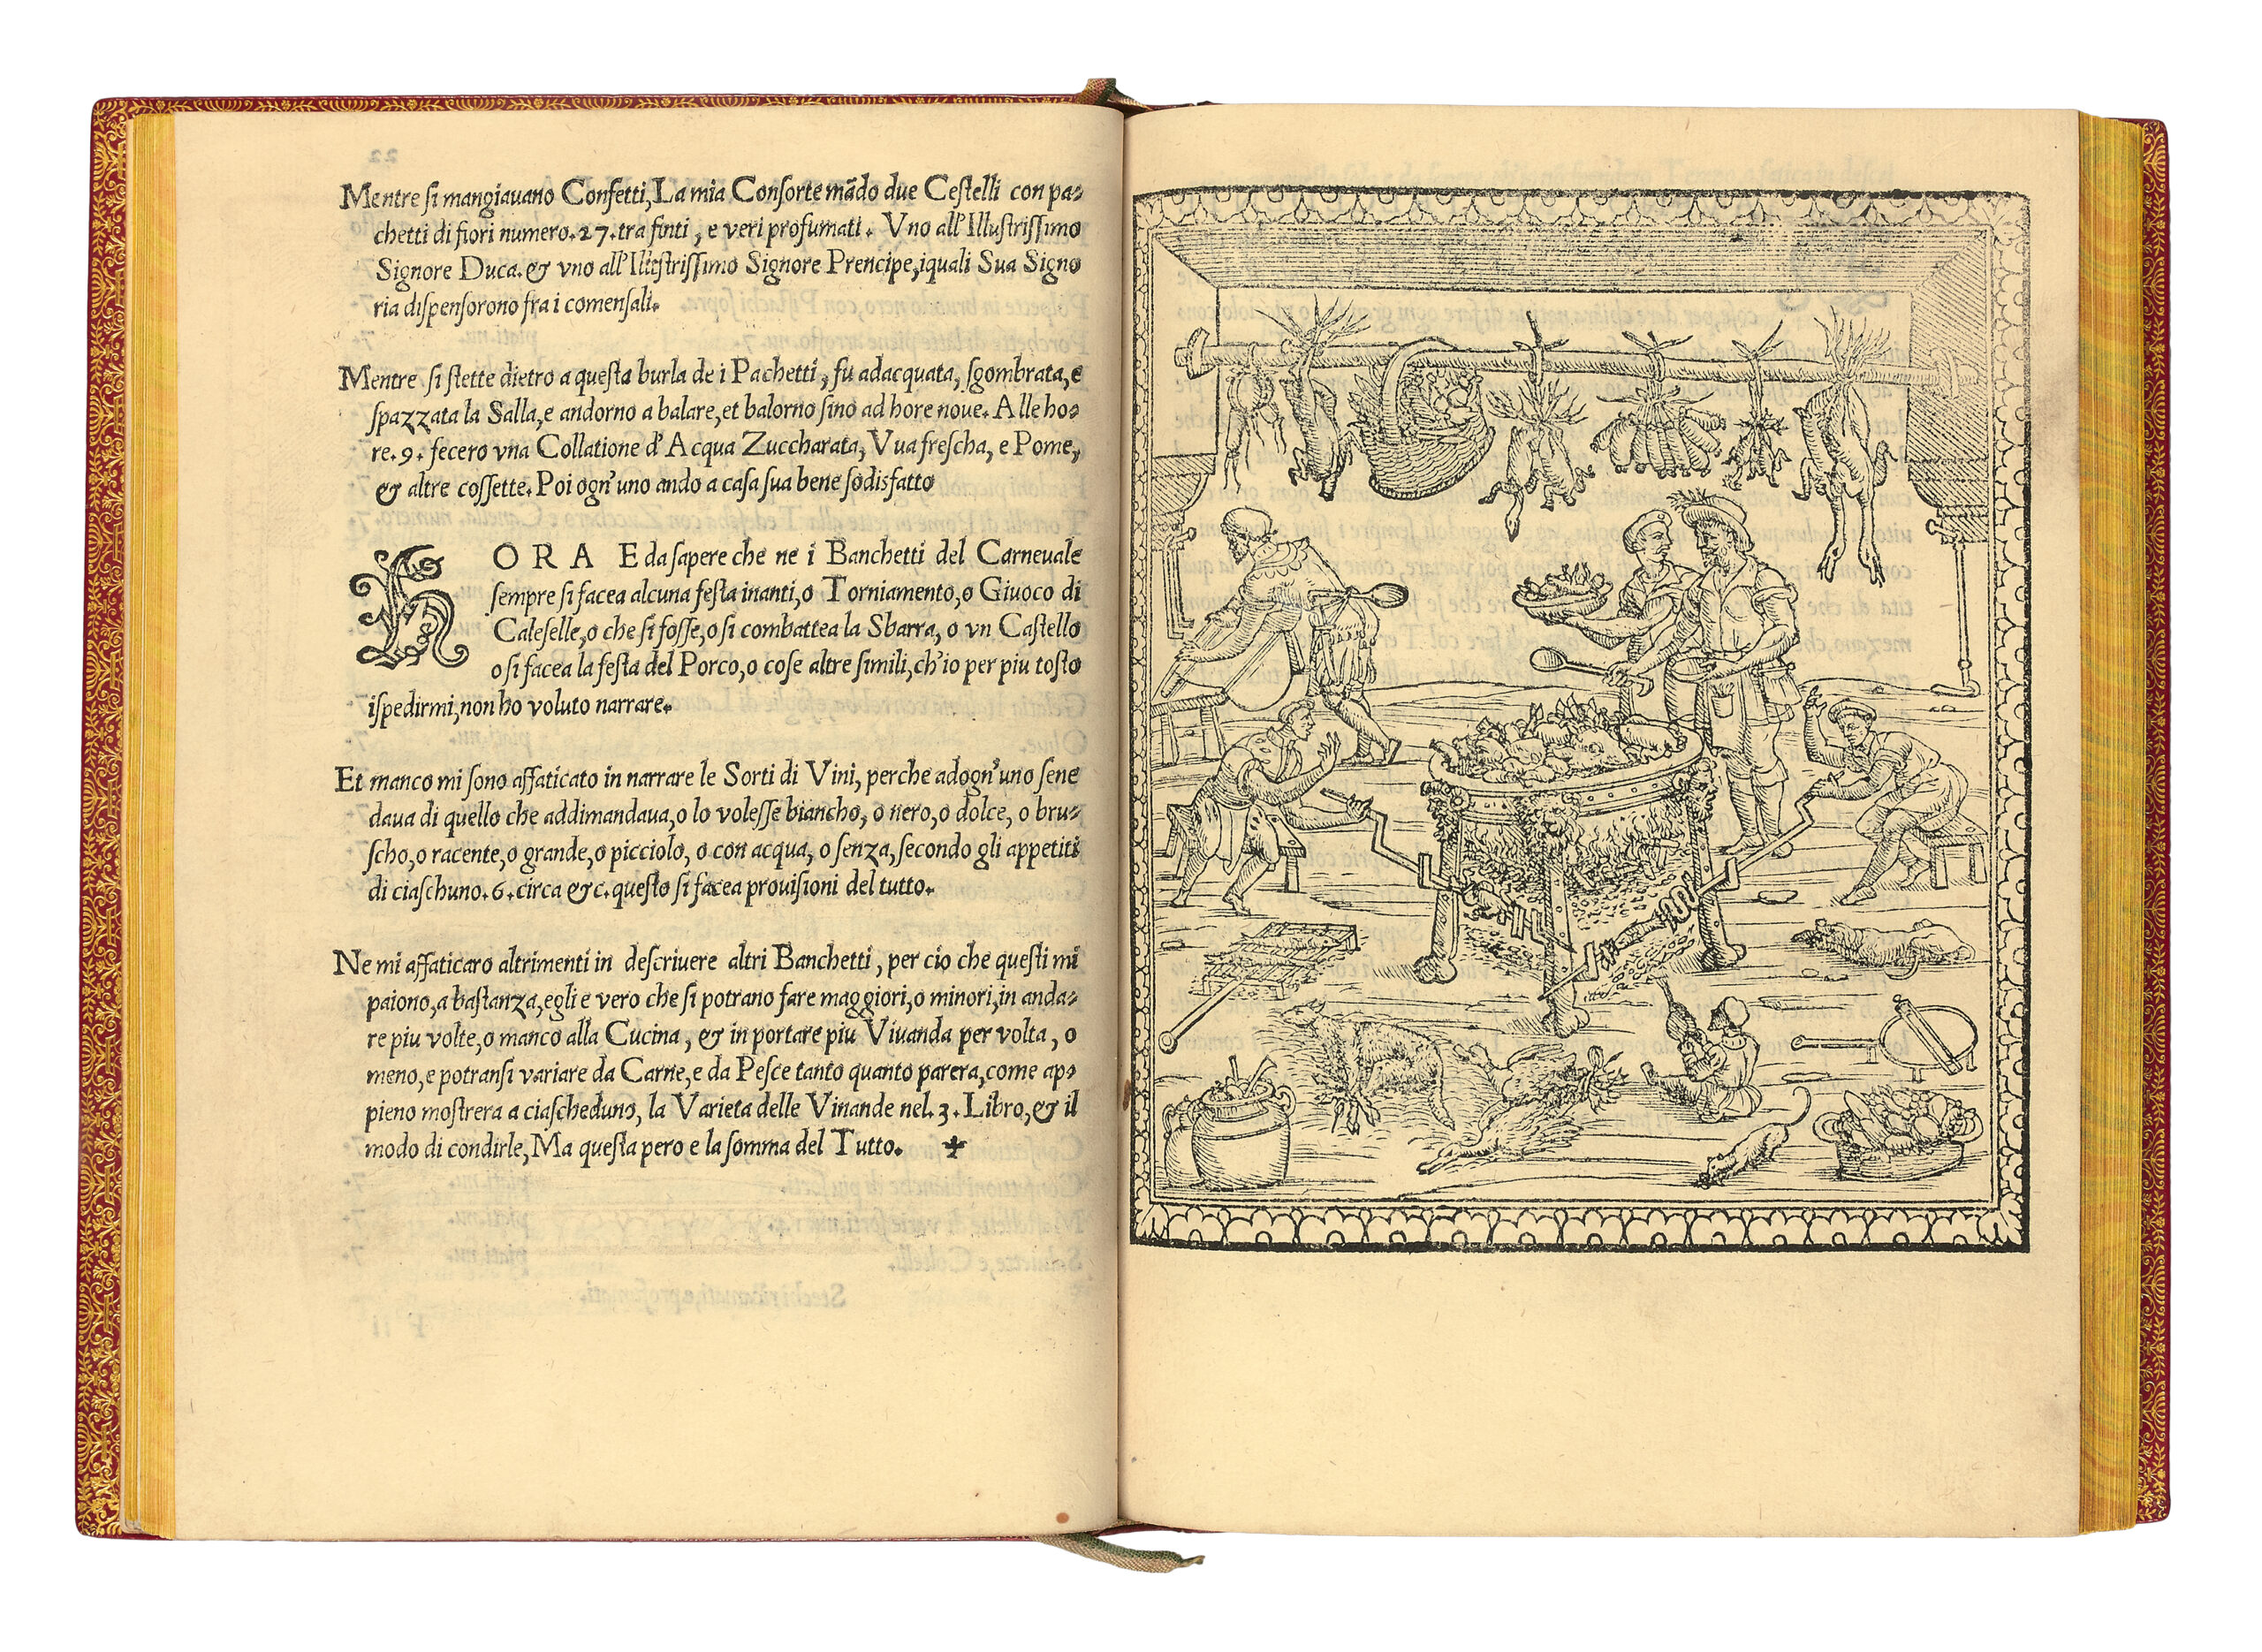 Mentre si mangiauano Confetti, La mia Consorte mãdo due Cestelli con pa-
chetti di fiori numero. 27. tra finti, e veri profumati. Vno all'Illustrissimo
Signore Duca. & vno all'Illustrissimo Signore Prencipe, iquali Sua Signo
ria dispensorono fra i comensali.
Mentre si stette dietro a questa burla de i Pachetti, fu adacquata, sgombrata, e
spazzata la Salla, e andorno a balare, et balorno sino ad hore noue. Alle ho-
re. 9. fecero vna Collatione d'Acqua Zuccharata, Vua frescha, e Pome,
& altre cossette. Poi ogn'uno ando a casa sua bene sodisfatto
HORA E da sapere che ne i Banchetti del Carneuale
sempre si facea alcuna festa inanti, o Torniamento, o Giuoco di
Caleselle, o che si fosse, o si combattea la Sbarra, o vn Castello
o si facea la festa del Porco, o cose altre simili, ch'io per piu tosto
ispedirmi, non ho voluto narrare.
Et manco mi sono affaticato in narrare le Sorti di Vini, perche adogn'uno sene
daua di quello che addimandaua, o lo volesse biancho, o nero, o dolce, o bru-
scho, o racente, o grande, o picciolo, o con acqua, o senza, secondo gli appetiti
di ciaschuno. 6. circa &c. questo si facea prouisioni del tutto.
Ne mi affaticaro altrimenti in descriuere altri Banchetti, per cio che questi mi
paiono, a bastanza, egli e vero che si potrano fare maggiori, o minori, in anda-
re piu volte, o manco alla Cucina, & in portare piu Viuanda per volta, o
meno, e potransi variare da Carne, e da Pesce tanto quanto parera, come ap-
pieno mostrera a ciascheduno, la Varieta delle Viuande nel. 3. Libro, & il
modo di condirle, Ma questa pero e la somma del Tutto.